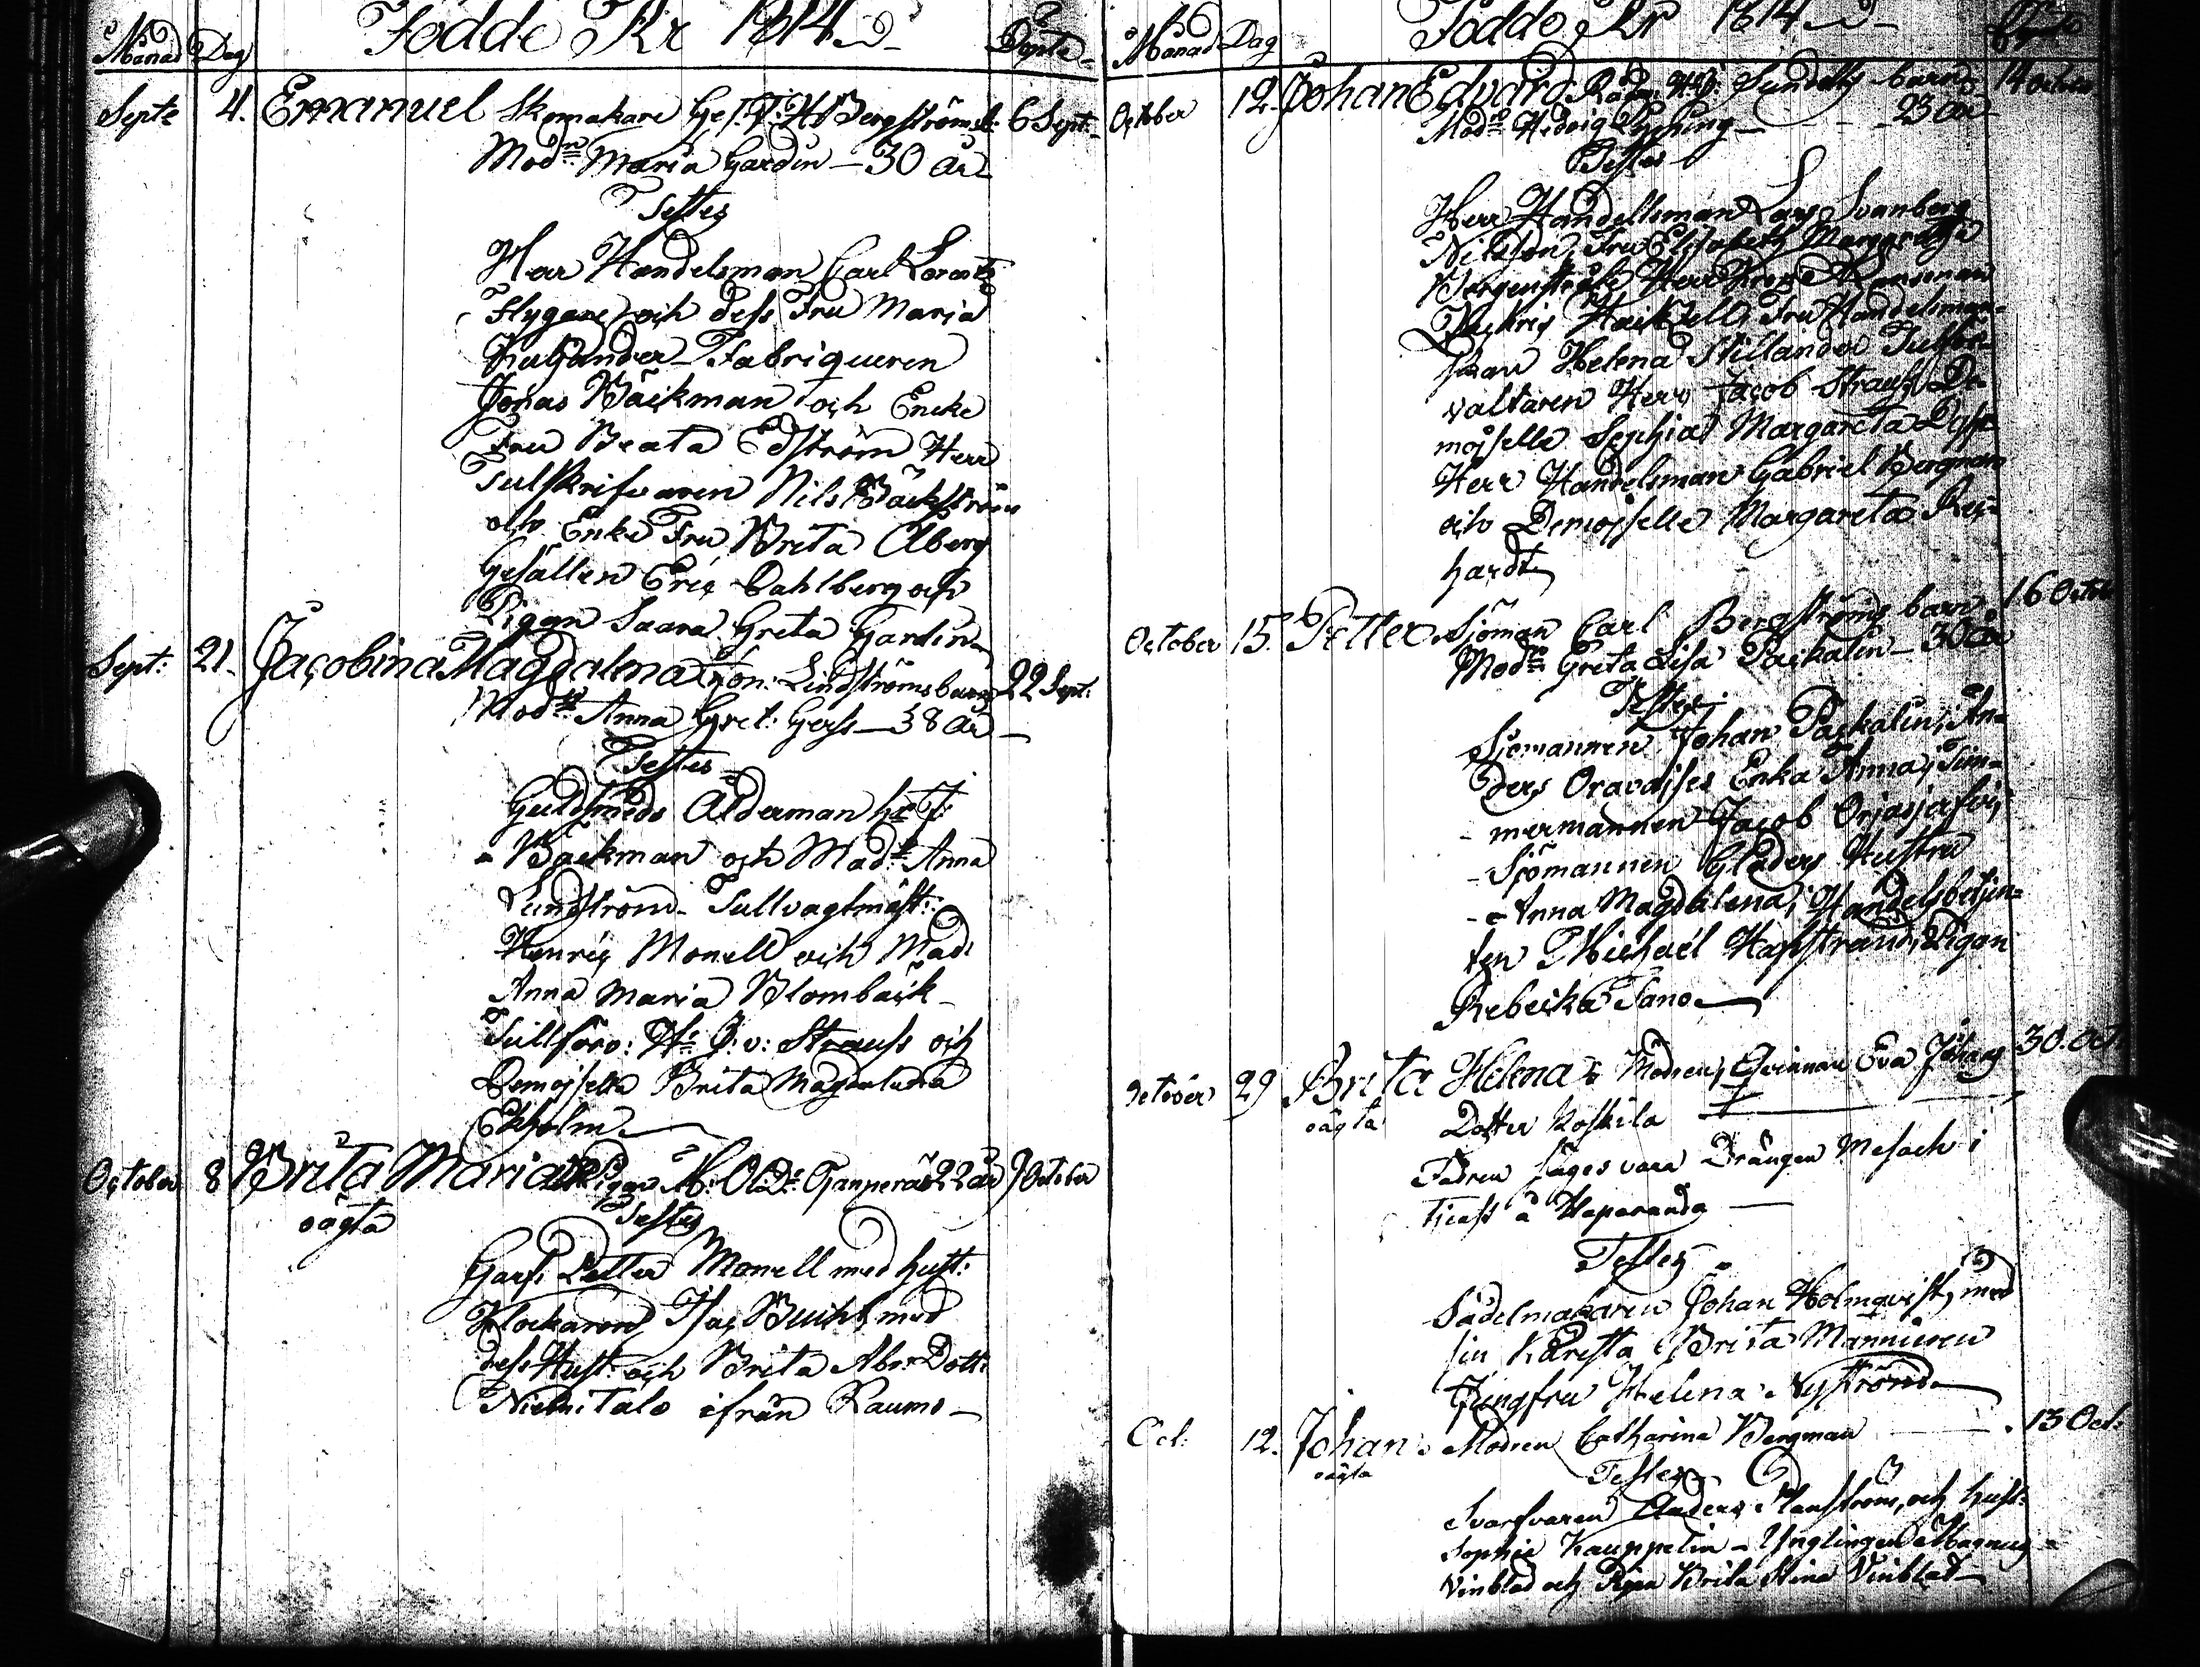 Månad Dag Födde År 1814 Döpte
Septe 4. Emanuel Skomakare Ges. Bergströms b: 6 Sept:
Modn Maria Gardin – 30 år
Testes
Herr Handelsman Carl Lorentz
Flygare och dess Fru Maria
Fabriqueuren
Jonas Bäckman och Encke
Fru Beata Edström Herr
Tulskrifvaren Nils Bäckström
och Enke Fru Brita Åberg
Gesällen Eric Dahlberg och
Pigan Saara Greta Gardin
Sept: 21. Jacobina Magdalena Lindströms barn 22 Sept:
Modn Anna Gret: – 38 år –
Testes
Guldsmeds Ålderman hr J:
Bäckman och Mad: Anna
Lundström – Tullvagtmäst:
Henric Monell och Mad:
Anna Maria Blombäck –
Tullförv: Hr J: v: Strauss och
Demoiselle Brita Magdalena
Ekholm
October 8 Brita Maria Pigan 22 år 9 October
oägta Testes
Garf: Petter Monell med hust:
Klockaren Isac med
dess Hust: och Brita Abr: Dott:
Niemi Talo ifrån Raumo –
Månad Dag Födde År 1814
October 12. Johan Edvard barn 14 octobr
Modn Hedvig – 23 år
Testes
Herr Handellsman Lars Svanberg
Fru Elisabeth Margareta
Herr
Fru Handelsman-
skan Helena Stillander Tullför-
valtaren Herr Jacob Strauss De-
mojselle Sophia Margareta
Herr Handelsman Gabriel Bergman
och Demojselle Margareta Rei-
hardt
October 15. Petter Sjöman Carl Bergströms barn 16 Octob
Modn Greta Lisa Paskalin – 30 år
Testes
Sjömannen Johan Paskalin, An-
ders Enka Anna, Tim-
mermannen Jacob
– Sjömannen Gladers Hustru
– Anna Magdalena, Handelsbetjen-
ten Michaël Pigan
Rebecka Tano
October 29 Brita Helena Modren, Qvinnan Eva Johans 30. Oct.
oägta Dotter Koskila
Fadren säges vara Drängen Mesach i
å Haparanda
Testes
Sadelmakaren Johan Holmqvist, med
sin Käresta Brita Manninen
Jungfru Helena Nyström
Oct: 12. Johan: Modren Catharina Bergman 13 Oct:
oägta Testes
Svarfvaren Anders och hust:
Sophie Kauppelin – Ynglingen Magnus
Vinblad och Pigan Brita Stina Vinblad –